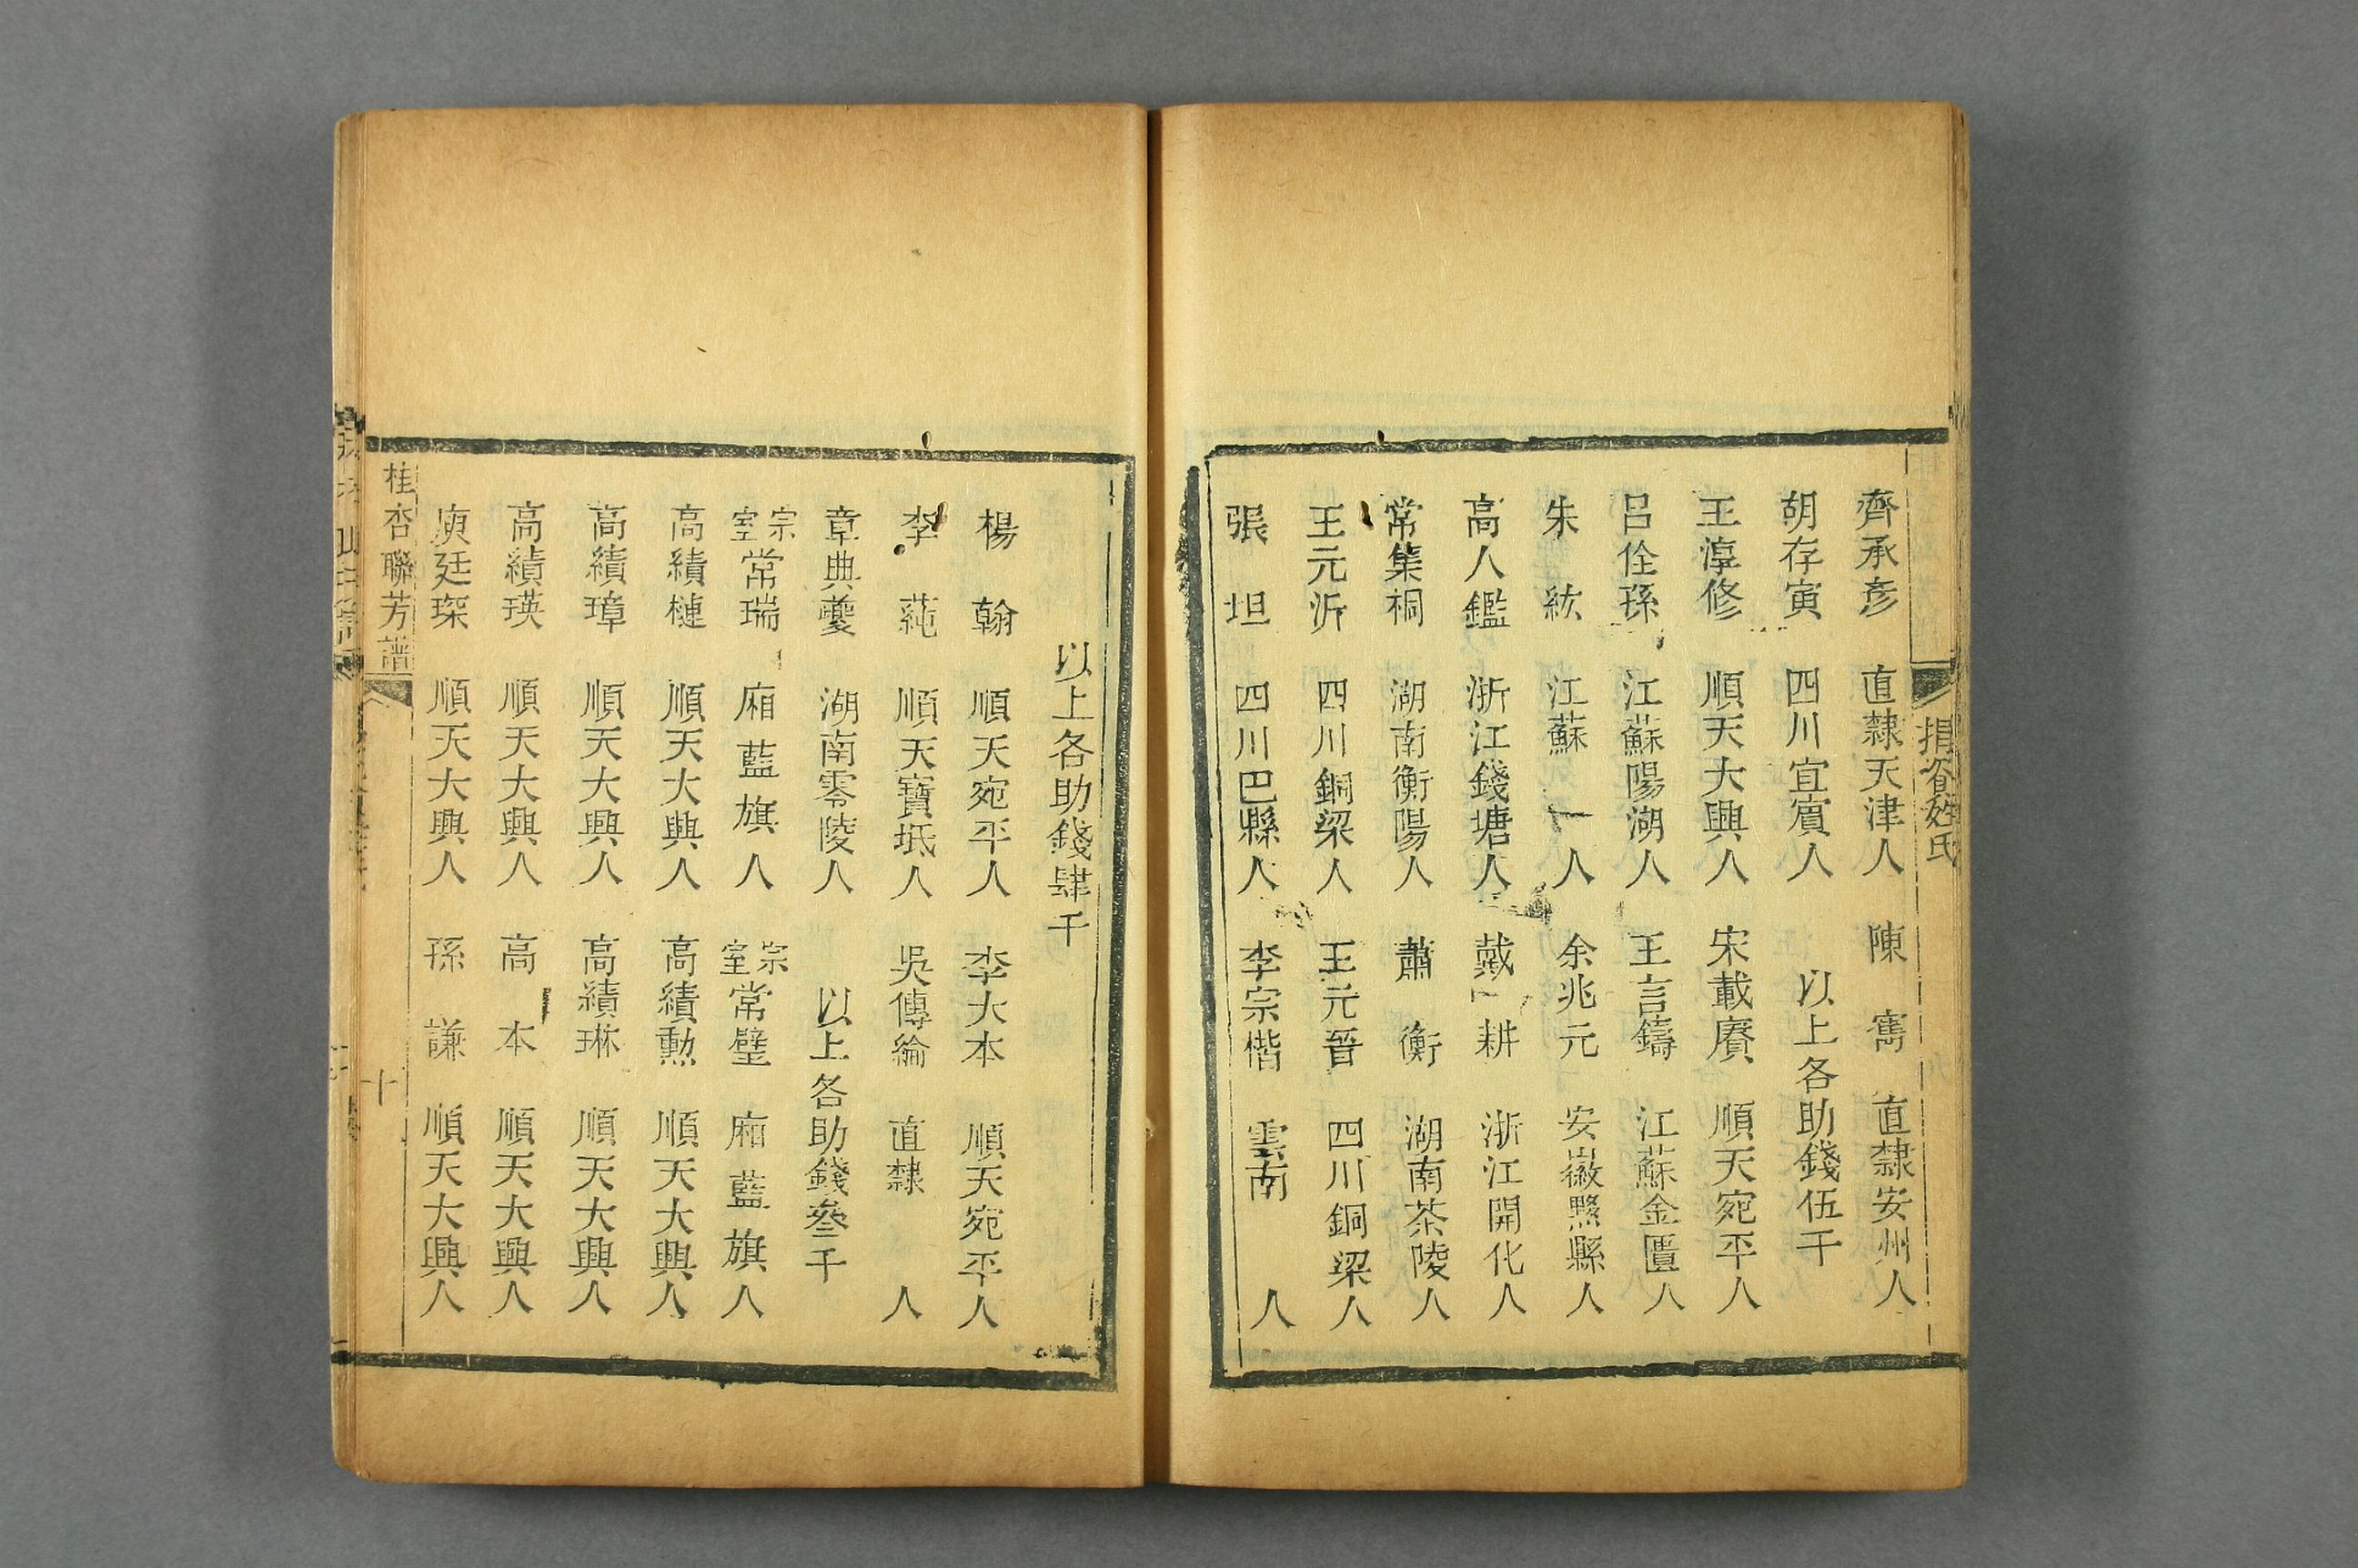 捐資姓氏
齊承彥　直隸天津人　陳　寯　直隸安州人
胡存寅　四川宜賓人　以上各助錢伍千
王淳修　順天大興人　宋載賡　順天宛平人
呂佺孫　江蘇陽湖人　王言鑄　江蘇金匱人
朱　紘　江蘇　人　余兆元　安徽黟縣人
高人鑑　浙江錢塘人　戴　耕　浙江開化人
常集祠　湖南衡陽人　蕭　衡　湖南茶陵人
王元沂　四川銅梁人　王元晉　四川銅梁人
張　坦　四川巴縣人　李宗楷　雲南　人
以上各助錢肆千
楊　翰　順天宛平人　李大本　順天宛平人
李　蒓　順天寶坻人　吳傳綸　直隸　人
章典夔　湖南零陵人　以上各助錢叄千
宗室常瑞　廂藍旗人　宗室常璧　廂藍旗人
高績槤　順天大興人　高績勳　順天大興人
高績璋　順天大興人　高績琳　順天大興人
高績瑛　順天大興人　高　本　順天大興人
庾廷琛　順天大興人　孫　謙　順天大興人
桂杏聯芳譜　十